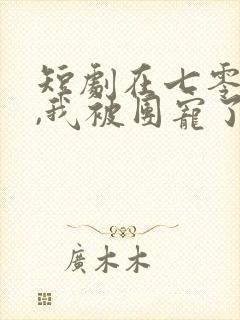 短劇在七零
,我被團寵了
廣木木